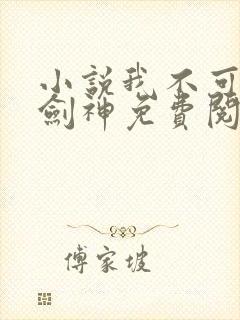 小說我不可
劍神免費閱
傅家坡